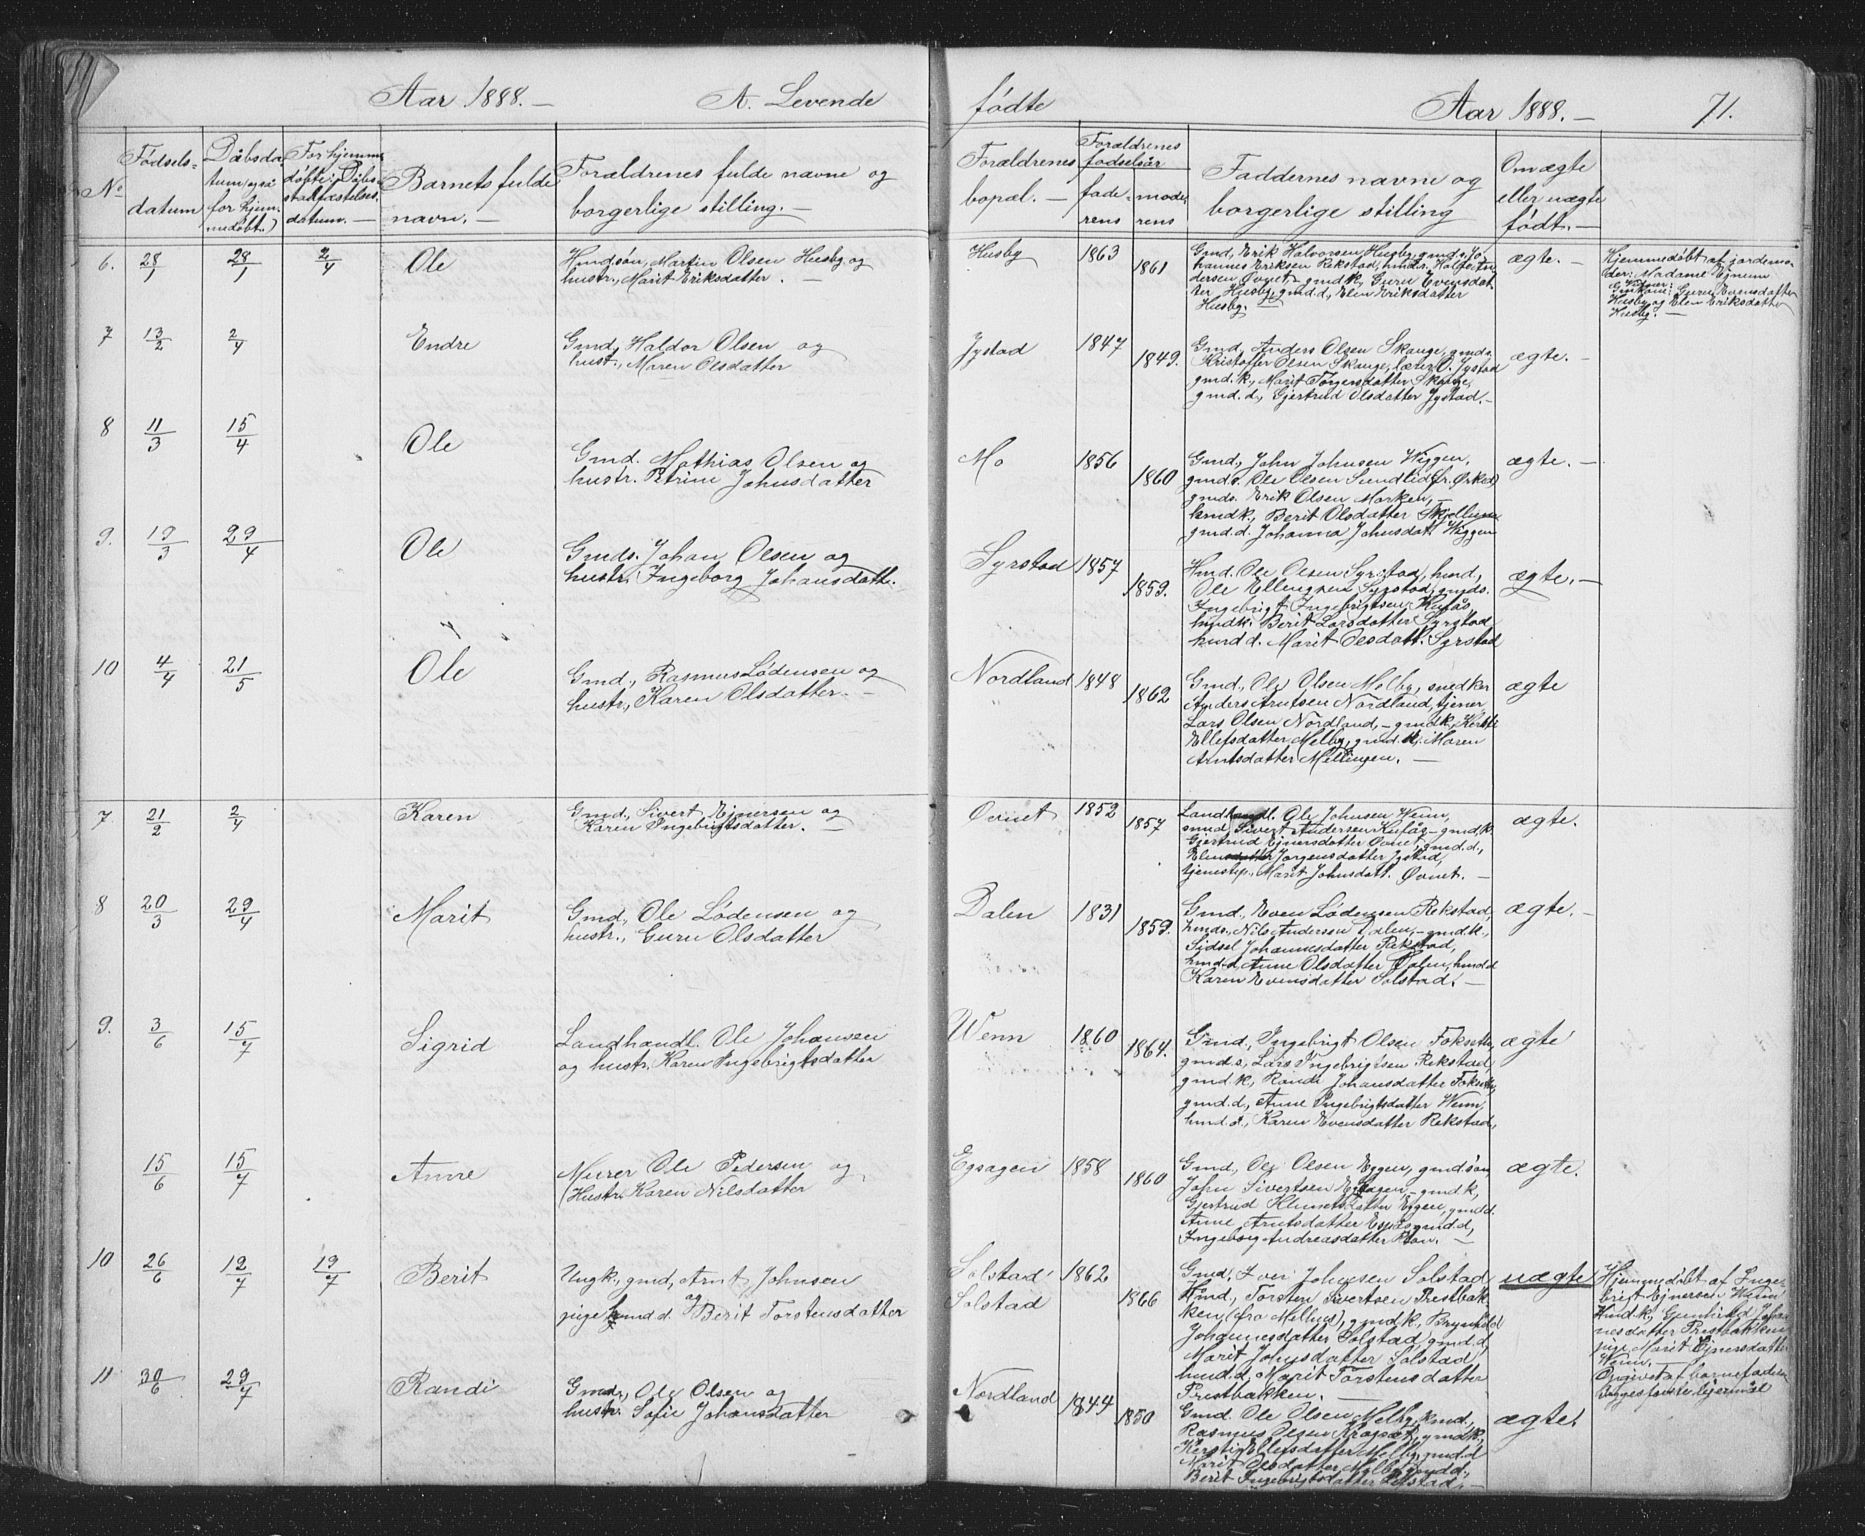 Aar 1888. — A. Levende fødte Aar 1888. — 71.
No
Fødsels-
datum
Dåbsda-
tum (også
for hjem-
medøbt.)
For hjemme
døbte: Dåbs-
stadfæstelses-
datum. —
Barnets fulde
navn. —
Forældrenes fulde navne og
borgerlige stilling. —
Forældrenes
bopæl. —
Forældrenes
fødselsår
fade-
rens
mode-
rens
Faddernes navne og
borgerlige stilling
Om ægte
eller uægte
født. —
6. 28/1 28/1 2/4 Ole
Hmdsøn, Martin Olsen Husby og
hustr., Marit Eriksdatter. —
Husby 1863 1861
Gmd, Erik Halvorsen Husby, gmds Jo-
hannes Eriksen Rekstad, hmds.
dersen Øvnet - gmdk, Guru Evensdat-
ter Husby, gmd.d, Elen Eriksdatter
Husby. —
ægte. —
Hjemmedøbt af jordemo-
der: Madame Ejnum
Vidner:
Guru Evensdatter
Husby og Elen Eriksdatter
Husby. —
7 13/2 2/4 Endre
Gmd, Haldor Olsen og
hust., Maren Olsdatter
Jystad 1847 1849.
Gmd, Anders Olsen Skauge, gmds.
Kristoffer Olsen Skauge, O. Jystad
gmd.k, Marit Torgersdatter Skauge,
gmd.d., Gjertrud Olsdatter Jystad. —
ægte. —
8 11/3 15/4 Ole
Gmd. Mathias Olsen og
hustr. Petrine Johnsdatter
Mo 1856 1860
Gmd, John Johnsen Wiggen,
gmds. Ole Olsen Sundli (fr. Ørkedl)
gmds. Erik Olsen Marken, —
hmdk., Berit Olsdatter
gmd.d. Johanna Johnsdatt Wiggen
ægte. —
9. 19/3 29/4 Ole
Gmds. Johan Olsen og
hustr. Ingeborg Johansdatt.
Syrstad 1857 1859.
Hmd. Ole Olsen Syrstad, hmd,
Ole Ellingsen Syrstad, gmds.
Ingebrigt Ingebrigtsen Kufås,
hmdk. Berit Larsdatter Syrstad
hmd d. Marit Olsdatt. Syrstad
ægte. —
10 4/4 21/5 Ole
Gmd., Rasmus Lødensen og
hustr., Karen Olsdatter. —
Nordland 1848 1862
Gmd., Ole Olsen Melby, snedker
Anders Arntsen Nordland, tjener
Lars Olsen Nordland, — gmdk, Kersti
Ellefsdatter Melby, gmd.k, Maren
Arntsdatter Mellingen. —
ægte
7 21/2 2/4 Karen
Gmd., Sivert Ejnersen og
Karen Ingebrigtsdatter. —
Øvnet 1852 1857
Landhandl. Ole Johnsen Wenn,
gmd, Sivert Andersen Kufås - gmd.k.
Gjertrud Ejnersdatter Øvnet, gmd.d.,
Elen Jørgensdatter Jystad,
tjenestep., Marit Johnsdatt. Øvnet. —
ægte.
8 20/3 29/4 Marit
Gmd., Ole Lødensen og
hustr., Guru Olsdatter
Dalen 1831 1859.
Gmd., Even Lødensen Rekstad,
hmds., Nils Andersen Dalen, - gmdk.,
Sidsel Johannesdatter Rekstad,
hmd.d, Anne Olsdatter Dalen, hmd d
Karen Evensdatter Solstad. —
ægte. —
9. 3/6 15/7 Sigrid
Landhandl. Ole Johansen
og hustr. Karen Ingebrigtsdatter
Wenn 1860 1864.
Gmd, Ingebrigt Olsen
gmd s, Lars Ingebrigtsen Rekstad
gmd.k, Randi Johansdatter
gmd.d., Anne Ingebrigtsdatter Wenn,
hmd d., Karen Evensdatter Rekstad,
ægte
15/6 15/7 Anne
Murer Ole Pedersen og
Hustr. Karen Nilsdatter
Egsagen 1858 1860
Gmd, Ole Olsen Eggen, gmdsøn,
John Sivertsen Egsagen, — gmd.k,
Gjertrud Klemetsdatter Eggen, gmd.d.
Anne Arntsdatter gmd.d,
Ingeborg Andreasdatter Moan. —
ægte.
10 26/6 19/7 19/7 Berit
Ungk., gmd, Arnt Johnsen
og
pige hmd d. Berit Torstensdatter
Solstad 1862
Solstad 1866
Gmd, Iver Johnsen Solstad
Hmd, Torsten Sivertsen Prestbak-
ken (fra Melhus), gmdk, Brynhild
Johannesdatter Solstad, gmd.d,
Marit Johnsdatter Solstad,
hmd.d, Marit Torstensdatter
Prestbakken. —
uægte
Hjemmedøbt af Inge-
brigt Ejnersen Wenn
Hmd.k, Gunhild Johan-
nesdatter Prestbakken,
pige Marit Ejnersdatter
Wenn. —
Opgivet af barnefaderen
første lejermål
11 30/6 29/7 Randi
Gmdr, Ole Olsen og
hustr. Sofie Johansdatter
Nordland 1844 1850
Gmd. Ole Olsen Melby, hmd.,
Rasmus Olsen gmd.k,
Kersti Ellefsdatter Melby, gmd.d
Marit Olsdatter Melby, gmd.d.,
Berit Ingebrigtsdatter —
ægte.